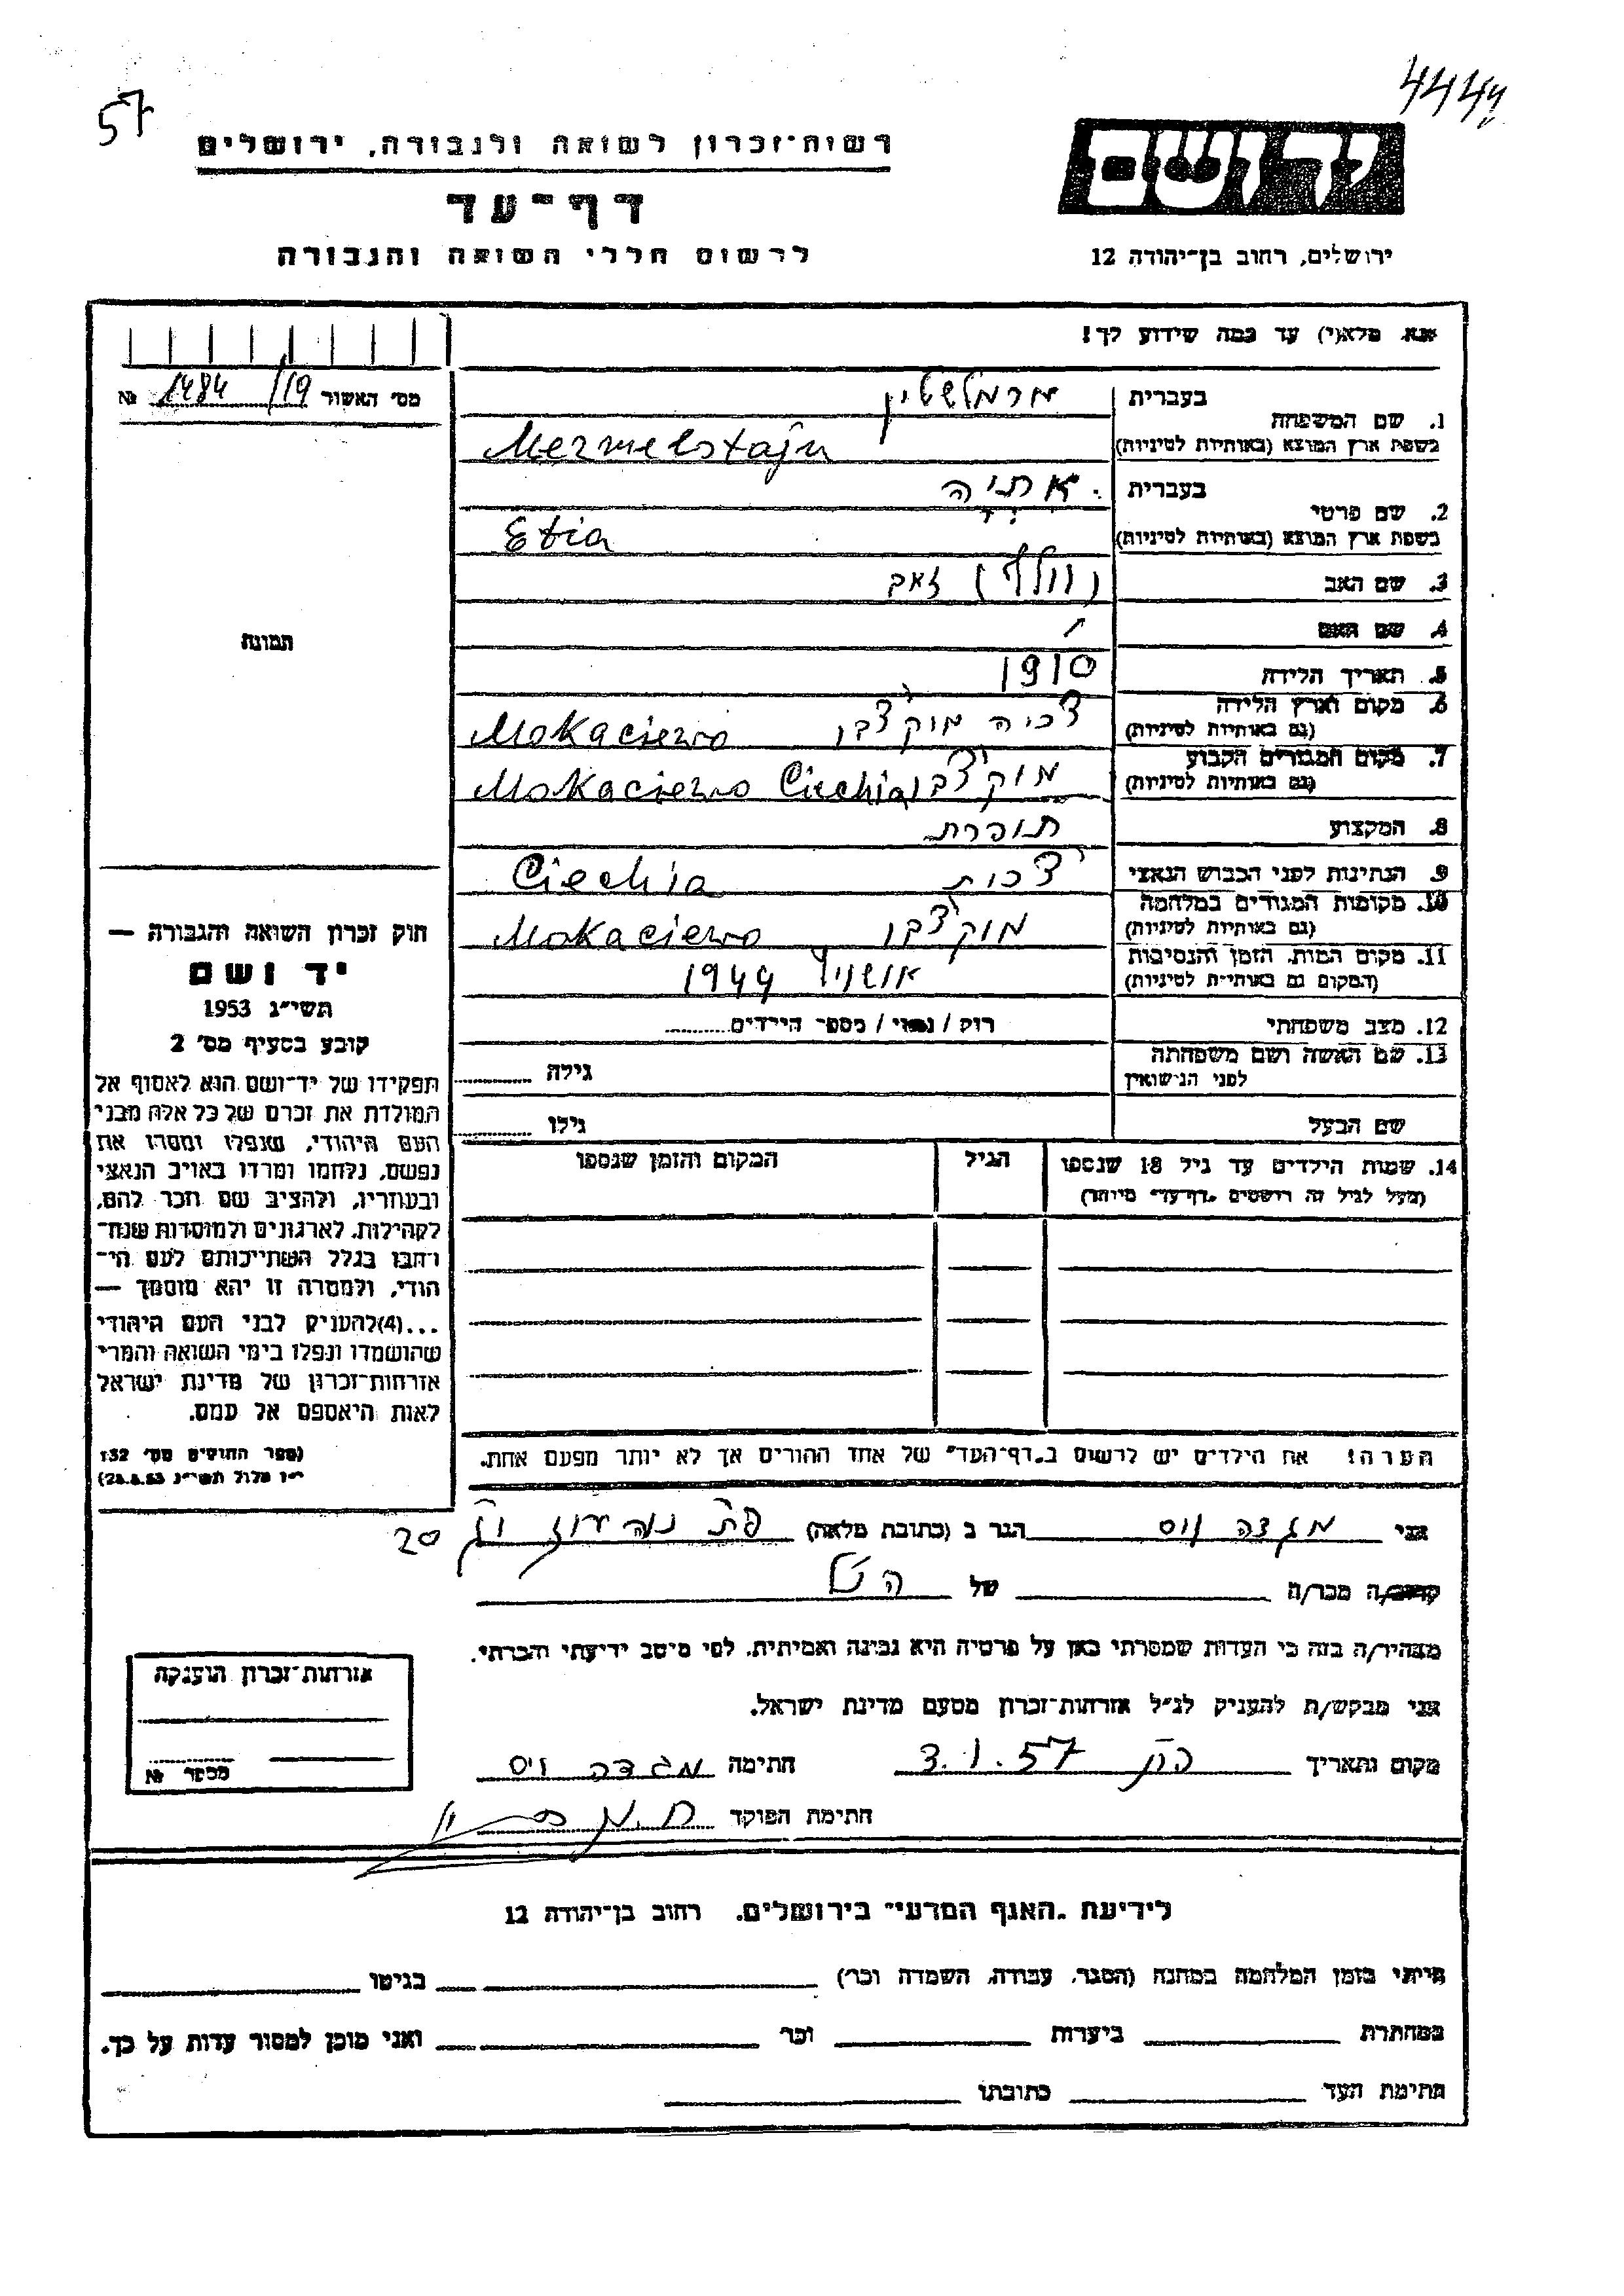 57
4444
רשות-זכרון לשואה ולגבורה, ירושלים
יד ושם
דף-עד
לרשום חללי השואה והגבורה
ירושלים, רחוב בן-יהודה 12
נא מלא(י) עד כמה שידוע לך!
מס׳ האשור 1484/19 №
1. שם המשפחה
בעברית מרמלשטין
בשפת ארץ המוצא (באותיות לטיניות) Mermelstajn
2. שם פרטי
בעברית אתיה
בשפת ארץ המוצא (באותיות לטיניות) Etia
3. שם האב (וולף) זאב
4. שם האם
5. תאריך הלידה 1910
6. מקום וארץ הלידה
(גם באותיות לטיניות) צ׳כיה מוקצ׳בו Mokaciewo
7. מקום המגורים הקבוע
(גם באותיות לטיניות) מוקצ׳בו Mokaciewo Ciechia
8. המקצוע תופרת
9. הנתינות לפני הכבוש הנאצי צ׳כית Ciechia
10. מקומות המגורים במלחמה
(גם באותיות לטיניות) מוקצ׳בו Mokaciewo
11. מקום המות, הזמן והנסיבות
(המקום גם באותיות לטיניות) 1944
12. מצב משפחתי רווק / נשוי / מספר הילדים
13. שם האשה ושם משפחתה
לפני הנישואין גילה
שם הבעל גילו
14. שמות הילדים עד גיל 18 שנספו הגיל המקום והזמן שנספו
(מעל לגיל זה רושמים "דף-עד" מיוחד)
הערה! את הילדים יש לרשום ב"דף-העד" של אחד ההורים אך לא יותר מפעם אחת.
תמונה
חוק זכרון השואה והגבורה —
יד ושם
תשי״ג 1953
קובע בסעיף מס׳ 2
תפקידו של יד-ושם הוא לאסוף אל
המולדת את זכרם של כל אלה מבני
העם היהודי, שנפלו ומסרו את
נפשם, נלחמו ומרדו באויב הנאצי
ובעוזריו, ולהציב שם וזכר להם,
לקהילות, לארגונים ולמוסדות שנח־
רבו בגלל השתייכותם לעם הי־
הודי, ולמטרה זו יהא מוסמך —
...(4)להעניק לבני העם היהודי
שהושמדו ונפלו בימי השואה והמרי
אזרחות-זכרון של מדינת ישראל
לאות היאספם אל עמם.
(ספר החוקים מס׳ 132
י״ז אלול תשי״ג 28.8.53)
אני מגדה ויס הגר ב (כתובת מלאה) 20
קרוב/ה מכר/ה של הנ״ל
מצהיר/ה בזה כי העדות שמסרתי כאן על פרטיה היא נכונה ואמיתית, לפי מיטב ידיעתי והכרתי.
אני מבקש/ת להעניק לנ״ל אזרחות-זכרון מטעם מדינת ישראל.
מקום ותאריך 3.1.57 חתימה מגדה ויס
חתימת הפוקד
אזרחות-זכרון הוענקה
מספר №
לידיעת "האגף המדעי" בירושלים, רחוב בן-יהודה 12
הייתי בזמן המלחמה במחנה (הסגר, עבודה, השמדה וכו׳) בגיטו
במחתרת ביערות וכו׳ ואני מוכן למסור עדות על כך.
חתימת העד כתובתו